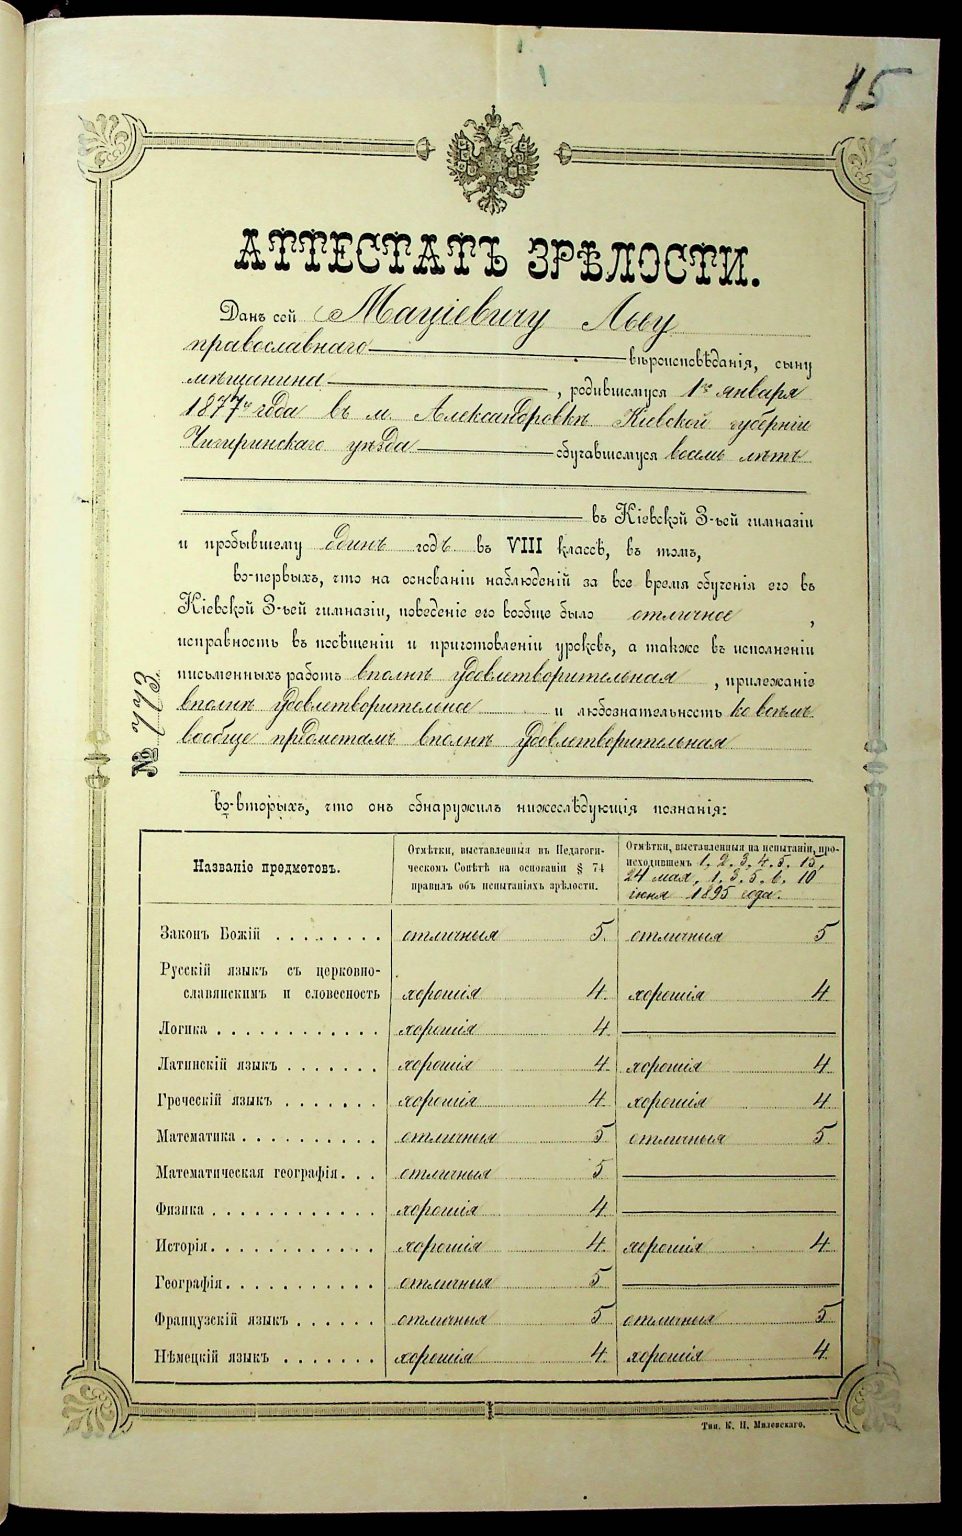 15
АТТЕСТАТЪ ЗРѢЛОСТИ.
Данъ сей Мацiевичу Льву
православнаго вѣроисповѣданiя, сыну
мѣщанина, родившемуся 1го января
1877го года въ м. Александровкѣ Кiевской губернiи
Чигиринскаго уѣзда обучавшемуся восемь лѣтъ
въ Кiевской 3-ьей гимназiи
и пробывшему одинъ годъ въ VIII классѣ, въ томъ,
во-первыхъ, что на основанiи наблюденiй за все время обученiя его въ
Кiевской 3-ьей гимназiи, поведенiе его вообще было отличное,
исправность въ посѣщенiи и приготовленiи уроковъ, а также въ исполненiи
письменныхъ работъ вполнѣ удовлетворительная, прилежанiе
вполнѣ удовлетворительное и любознательность ко всѣмъ
вообще предметамъ вполнѣ удовлетворительная
№ 773.
во-вторыхъ, что онъ обнаружилъ нижеслѣдующiя познанiя:
Названiе предметовъ.
Отмѣтки, выставленныя въ Педагоги-
ческомъ Совѣтѣ на основанiи § 74
правилъ объ испытанiяхъ зрѣлости.
Отмѣтки, выставленныя на испытанiи, про-
исходившемъ 1. 2. 3. 4. 5. 15,
24 мая, 1. 3. 5. 6. 10
iюня 1895 года.
Законъ Божiй . . . . . . . . отличныя 5. отличныя 5
Русскiй языкъ съ церковно-
славянскимъ и словесность хорошiя 4. хорошiя 4
Логика . . . . . . . . . . . . хорошiя 4.
Латинскiй языкъ . . . . . . . хорошiя 4. хорошiя 4.
Греческiй языкъ . . . . . . . хорошiя 4. хорошiя 4
Математика . . . . . . . . . . отличныя 5 отличныя 5
Математическая географiя. . . отличныя 5
Физика . . . . . . . . . . . . хорошiя 4.
Исторiя. . . . . . . . . . . . хорошiя 4. хорошiя 4.
Географiя. . . . . . . . . . . отличныя 5
Французскiй языкъ . . . . . . отличныя 5 отличныя 5
Нѣмецкiй языкъ . . . . . . . хорошiя 4. хорошiя 4.
Тип. К. Н. Милевскаго.